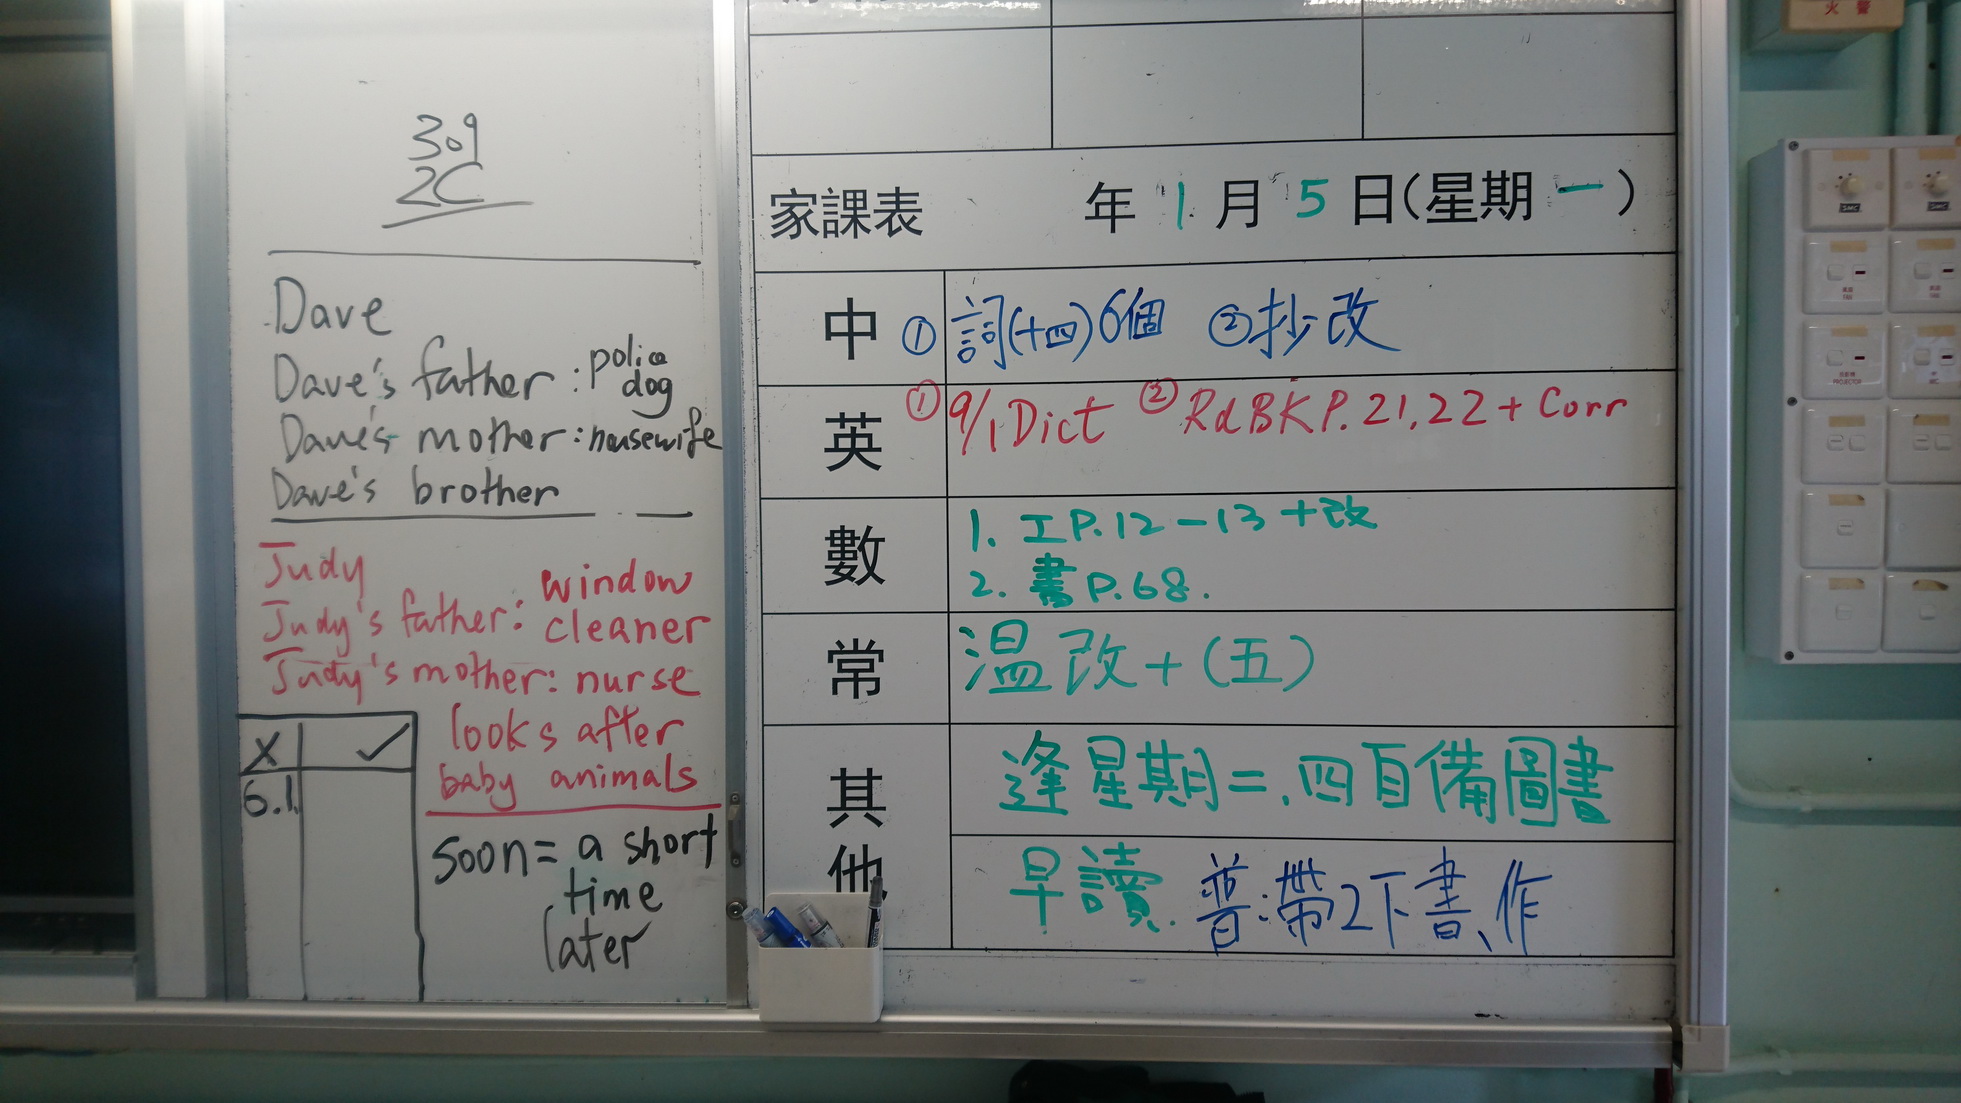 309
2C
Dave
Dave's father : police
dog
Dave's mother : housewife
Dave's brother
Judy
Judy's father : window
cleaner
Judy's mother : nurse
looks after
baby animals
X ✓
6.1
soon = a short
time
later
家課表 年 1 月 5 日(星期一)
中 ① 詞(十四)6個 ②抄改
英 ① 9/1 Dict ② Rd BK P.21,22 + Corr
數 1. 工P.12-13+改
2. 書P.68.
常 溫改+(五)
其他 逢星期二.四自備圖書
早讀. 普:帶2下書、作
火警